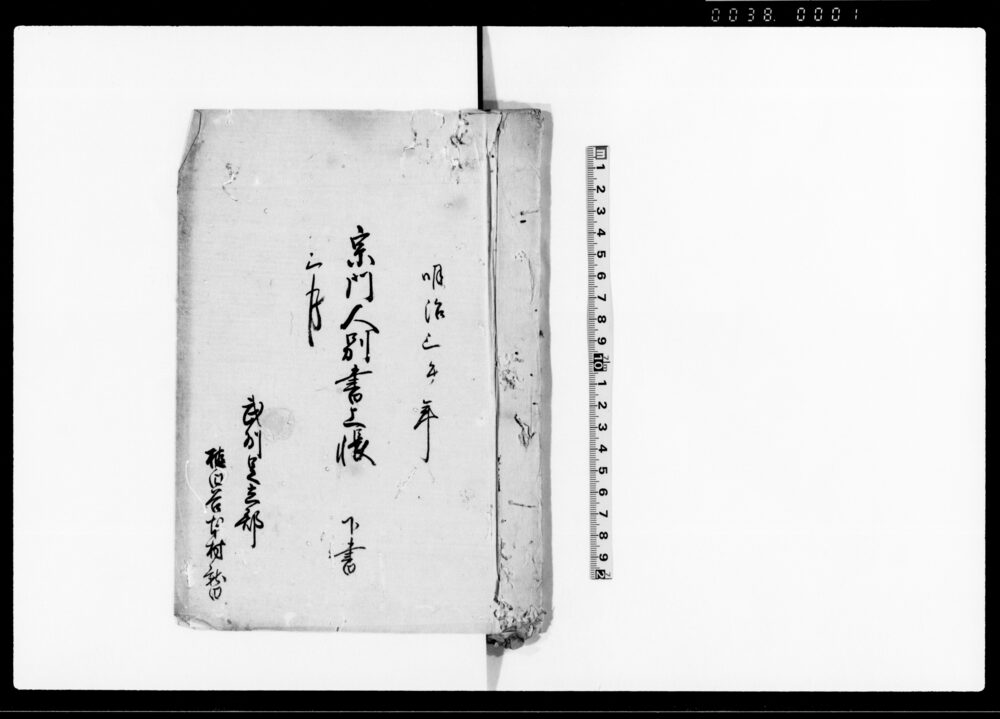 0038. 0001
明治三午年
宗門人別書上帳 下書
三月
武州足立郡
植田谷本村新田
1 2 3 4 5 6 7 8 9 10 1 2 3 4 5 6 7 8 9 2